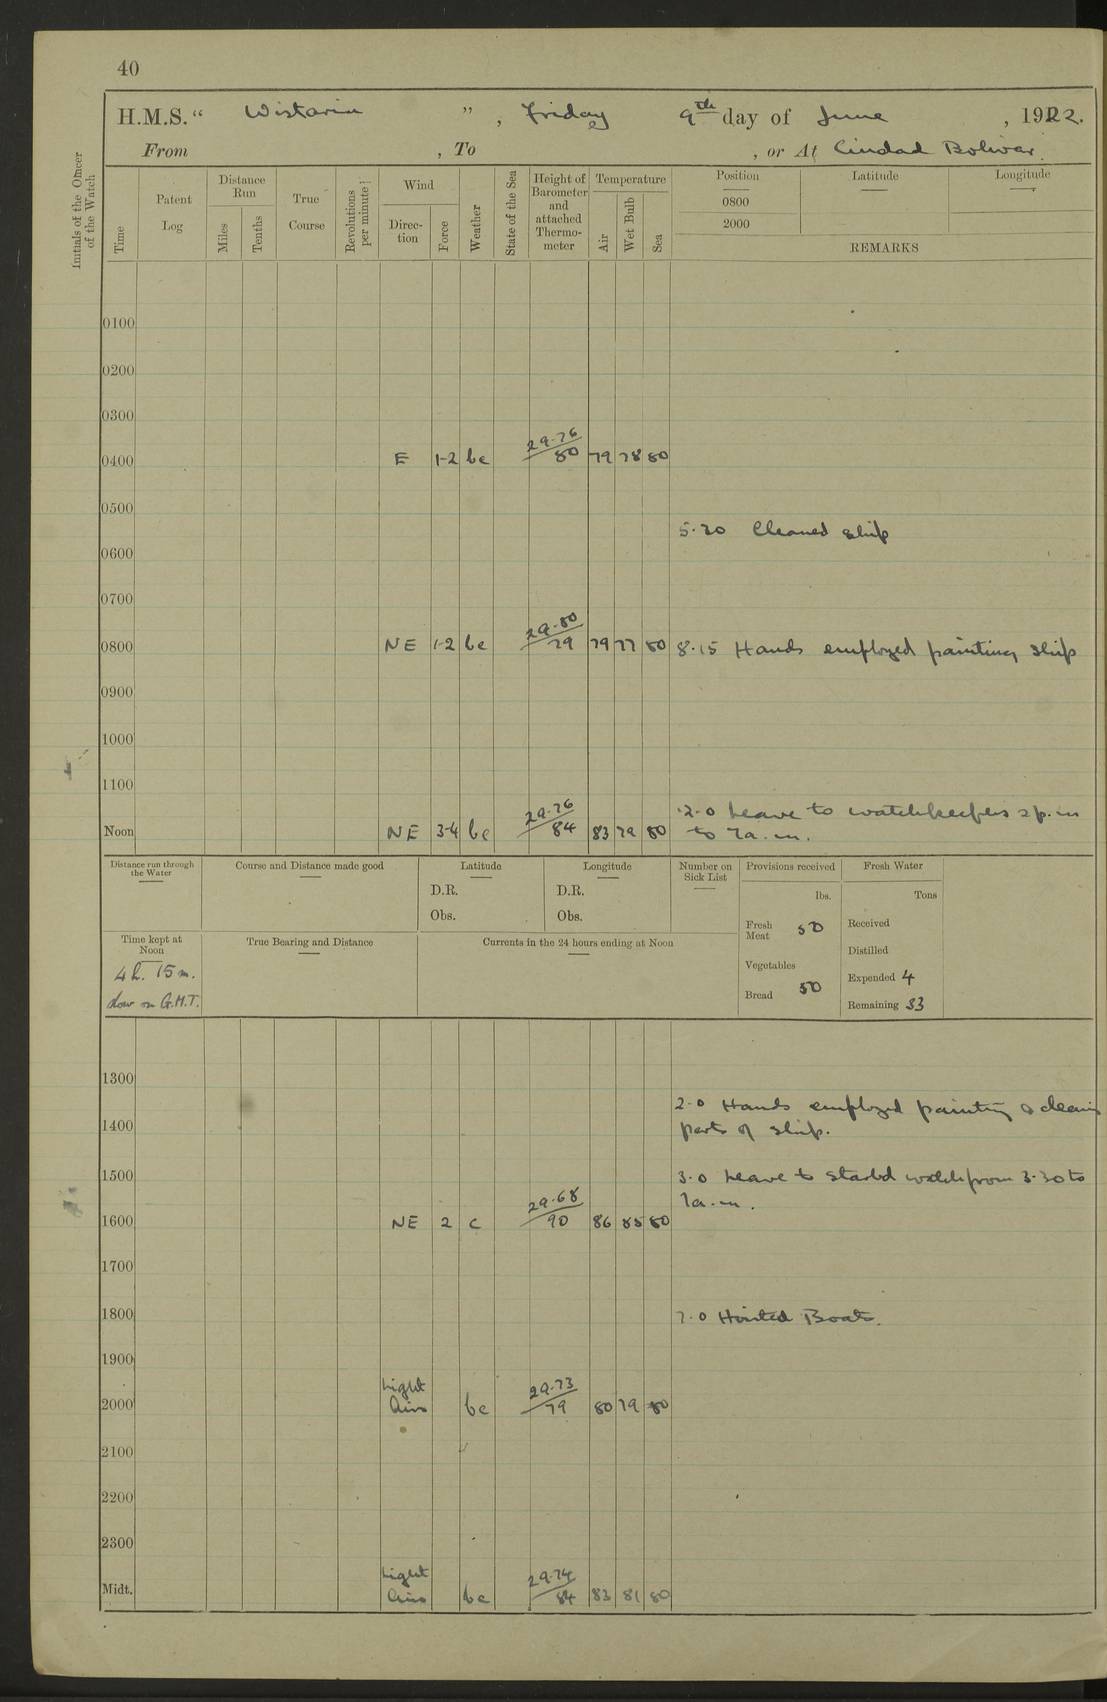 40
H.M.S. “ Wistaria ” , Friday 9th day of June , 1922.
From , To , or At Ciudad Bolivar.
Initials of the Officer of the Watch
Time
Patent Log
Distance Run
Miles
Tenths
True Course
Revolutions per minute
Wind
Direction
Force
Weather
State of the Sea
Height of Barometer and attached Thermometer
Temperature
Air
Wet Bulb
Sea
Position Latitude Longitude
0800
2000
REMARKS
0100
0200
0300
0400 E 1-2 bc 29.76/80 79 78 80
0500
5.30 Cleaned ship
0600
0700
0800 NE 1-2 bc 29.80/79 79 77 80 8.15 Hands employed painting ship
0900
1000
1100
2.0 Leave to watchkeepers 2 p.m
Noon NE 3-4 bc 29.76/84 83 79 80 to 7 a.m.
Distance run through the Water
Course and Distance made good
Latitude
D.R.
Obs.
Longitude
D.R.
Obs.
Number on Sick List
Provisions received
lbs.
Fresh Meat 50
Vegetables
Bread 50
Fresh Water
Tons
Received
Distilled
Expended 4
Remaining 33
Time kept at Noon
4 h. 15 m.
slow on G.M.T.
True Bearing and Distance
Currents in the 24 hours ending at Noon
1300
2.0 Hands employed painting & cleaning
1400 parts of ship.
1500 3.0 Leave to starbd watch from 3.30 to
7 a.m.
1600 NE 2 c 29.68/90 86 85 80
1700
1800 7.0 Hoisted Boats.
1900
2000 Light Airs bc 29.73/79 80 79 80
2100
2200
2300
Midt. Light Airs bc 29.74/84 83 81 80